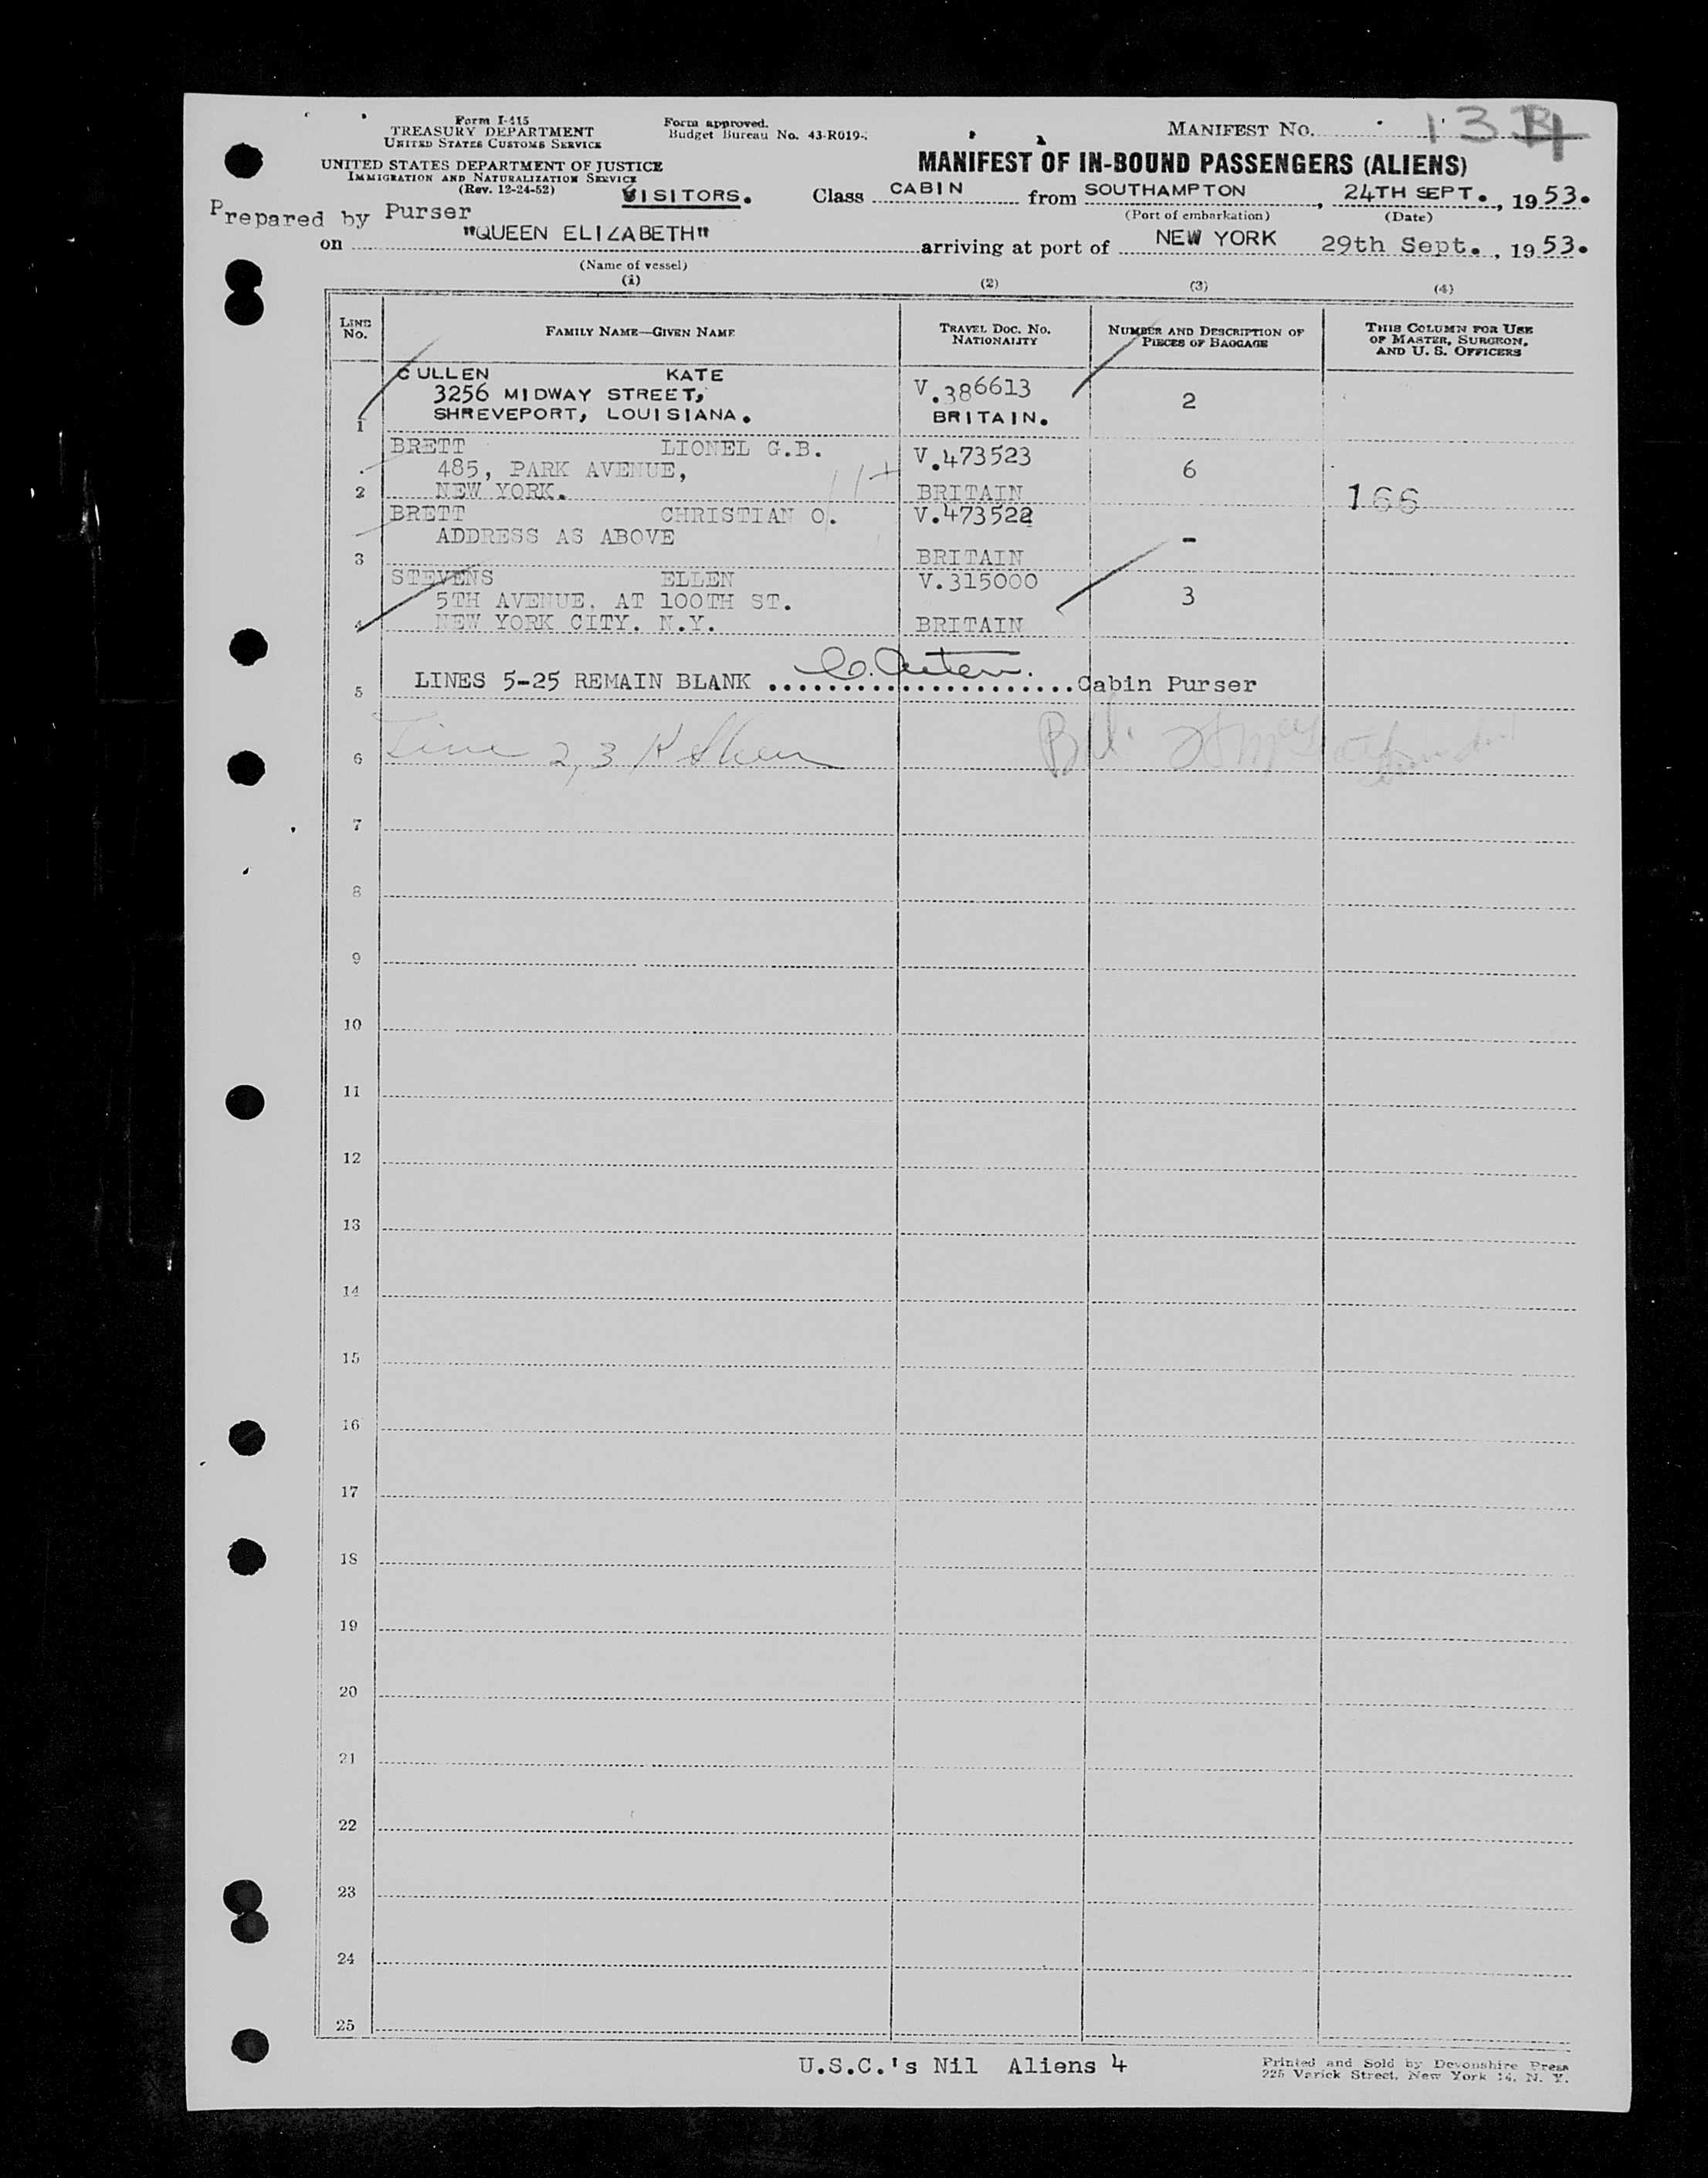 Form I-415
TREASURY DEPARTMENT
UNITED STATES CUSTOMS SERVICE
Form approved.
Budget Bureau No. 43-R019-
MANIFEST NO. 13
UNITED STATES DEPARTMENT OF JUSTICE
IMMIGRATION AND NATURALIZATION SERVICE
(Rev. 12-24-52)
MANIFEST OF IN-BOUND PASSENGERS (ALIENS)
VISITORS. Class CABIN from SOUTHAMPTON, 24TH SEPT., 1953.
(Port of embarkation) (Date)
Prepared by Purser
on "QUEEN ELIZABETH" arriving at port of NEW YORK 29th Sept., 1953.
(Name of vessel)
(1) (2) (3) (4)
LINE NO. FAMILY NAME—GIVEN NAME TRAVEL DOC. NO. NATIONALITY NUMBER AND DESCRIPTION OF PIECES OF BAGGAGE THIS COLUMN FOR USE OF MASTER, SURGEON, AND U. S. OFFICERS
CULLEN KATE V.386613
3256 MIDWAY STREET, 2
1 SHREVEPORT, LOUISIANA. BRITAIN.
BRETT LIONEL G.B. V.473523
485, PARK AVENUE, 6
2 NEW YORK. BRITAIN 166
BRETT CHRISTIAN O. V.473522
ADDRESS AS ABOVE -
3 BRITAIN
STEVENS ELLEN V.315000
5TH AVENUE, AT 100TH ST. 3
4 NEW YORK CITY. N.Y. BRITAIN
5 LINES 5-25 REMAIN BLANK Cabin Purser
6 Line 2,3
7
8
9
10
11
12
13
14
15
16
17
18
19
20
21
22
23
24
25
U.S.C.'s Nil Aliens 4
Printed and Sold by Devonshire Press
225 Varick Street, New York 14, N. Y.